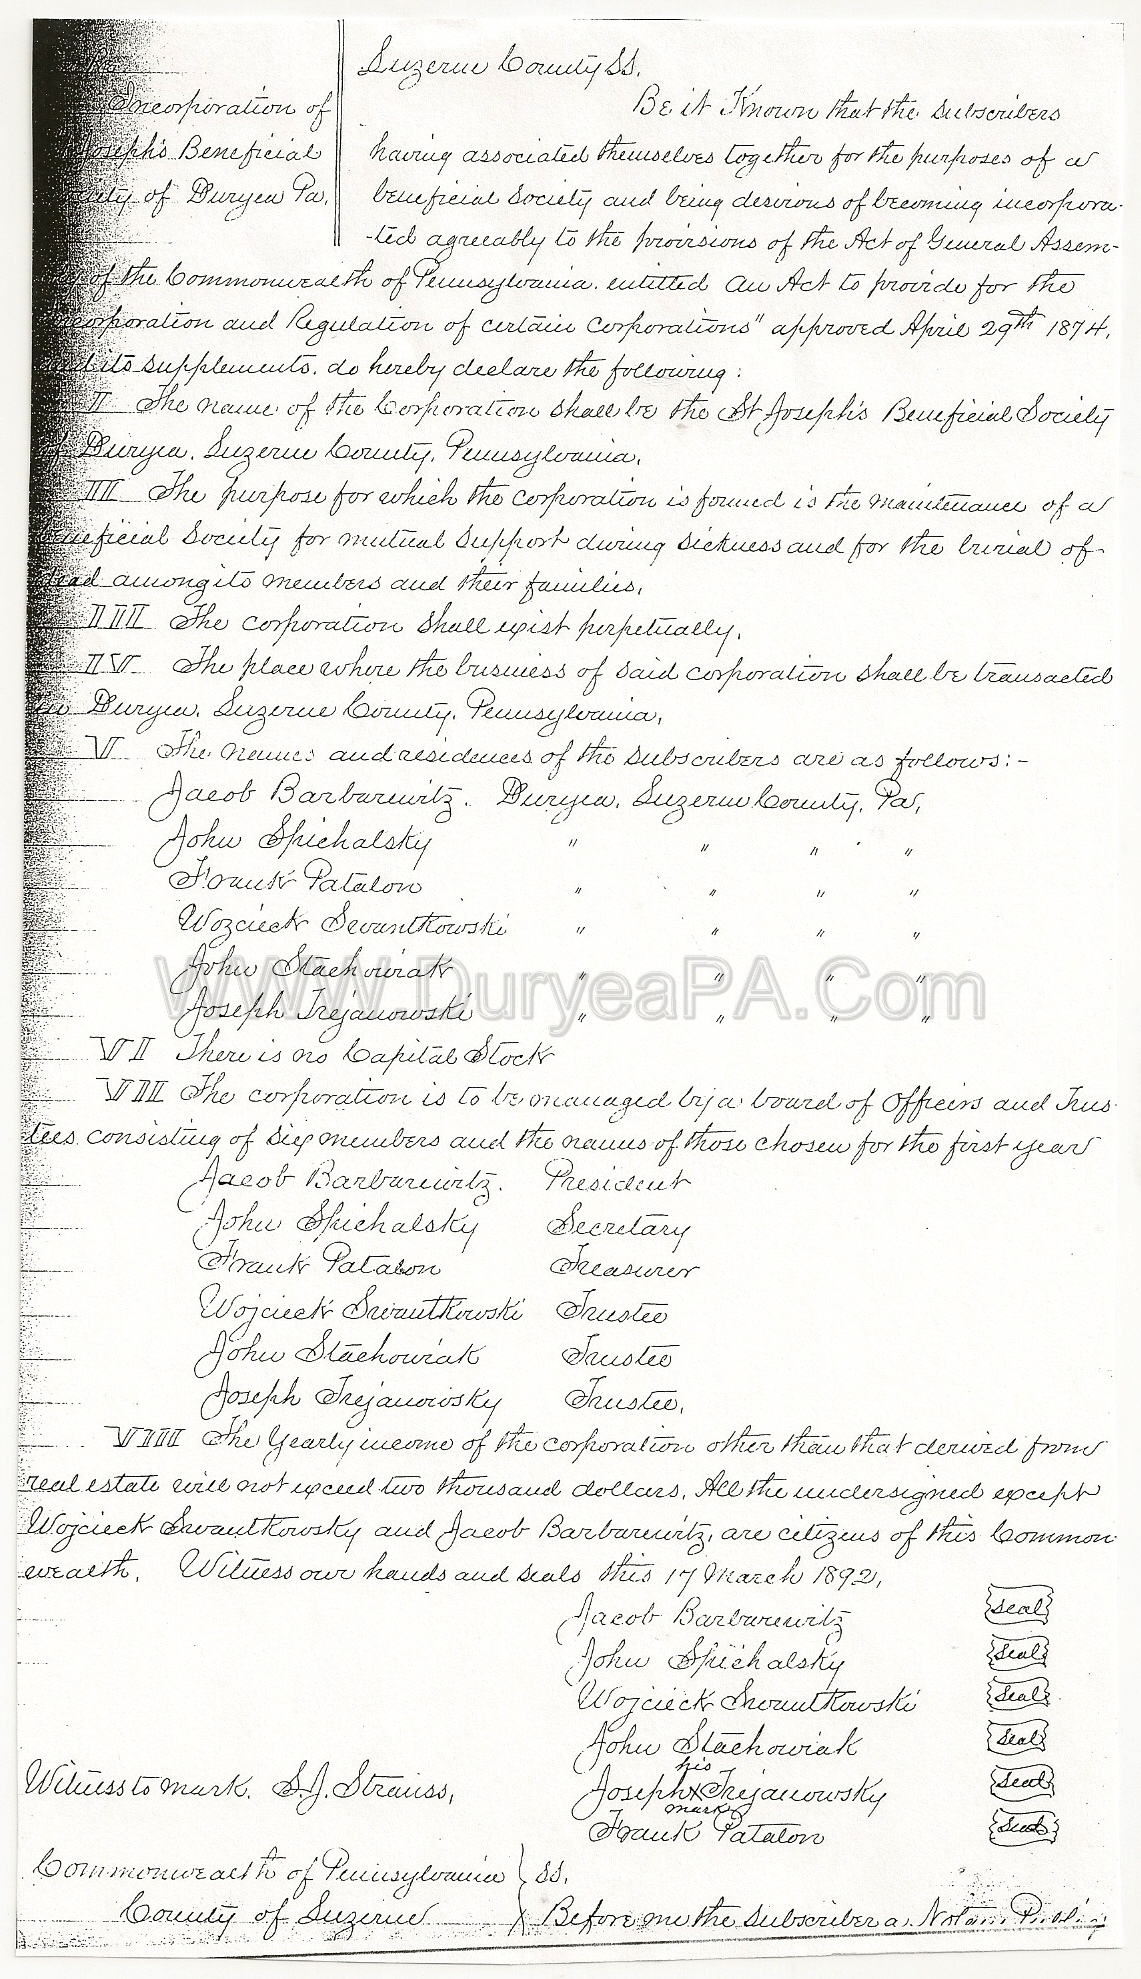 Luzerne County SS.
Be it Known that the subscribers
Incorporation of
Joseph's Beneficial
having associated themselves together for the purposes of a
of Duryea Pa.
beneficial Society and being desirous of becoming incorpora-
-ted agreeably to the provisions of the Act of General Assem-
of the Commonwealth of Pennsylvania. entitled An Act to provide for the
incorporation and Regulation of certain corporations" approved April 29th 1874.
and its supplements. do hereby declare the following:
I The name of the Corporation shall be the St Joseph's Beneficial Society
of Duryea. Luzerne County. Pennsylvania.
II The purpose for which the corporation is formed is the maintenance of a
beneficial Society for mutual support during sickness and for the burial of
dead among its members and their families.
III The corporation shall exist perpetually.
IV The place where the business of said corporation shall be transacted
in Duryea. Luzerne County. Pennsylvania.
V The names and residences of the subscribers are as follows:-
Jacob Barburewitz. Duryea. Luzerne County. Pa.
John Spichalsky " " " "
Frank Patalon " " " "
Wozcieck Swantkowski " " " "
John Stachowiak " " " "
WWW.DuryeaPA.Com
Joseph Trejanowski " " " "
VI There is no Capital Stock
VII The corporation is to be managed by a board of Officers and Trus-
tees consisting of six members and the names of those chosen for the first year
Jacob Barburewitz. President
John Spichalsky Secretary
Frank Patalon Treasurer
Wojcieck Swantkowski Trustee
John Stachowiak Trustee
Joseph Trejanowsky Trustee.
VIII The Yearly income of the corporation other than that derived from
real estate will not exceed two thousand dollars. All the undersigned except
Wojcieck Swantkowsky and Jacob Barburewitz, are citizens of this Common-
wealth. Witness our hands and seals this 17 March 1892.
Jacob Barburewitz Seal
John Spichalsky Seal
Wojcieck Swantkowski Seal
John Stachowiak Seal
his
Witness to mark. S.J. Strauss. Joseph X Trejanowsky Seal
mark
Frank Patalon Seal
Commonwealth of Pennsylvania } SS.
County of Luzerne } Before me the subscriber a Notary Public